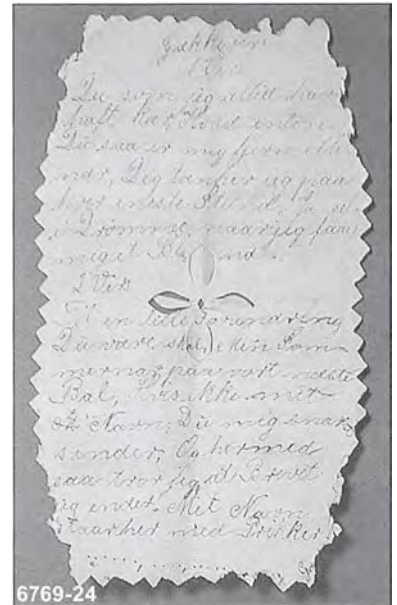 Gækkebrev
1 Vers
Du som jeg altid har
haft kær, Hvad enten
Du saa er mig fjern eller
nær, Dig tænker jeg paa
hver eneste Stund, Ja selv
i Drömme, naar jeg faar
mig et Blund.
2 Vers
Til en lille Forundring
Du være skal, i den Som-
mernat paa vort næste
Bal, Hvis ikke mit
Navn, Du mig snart
sender, Og hermed
saa tror jeg at Brevet
jeg ender. Mit Navn
staar her med Prikker.
6769-24